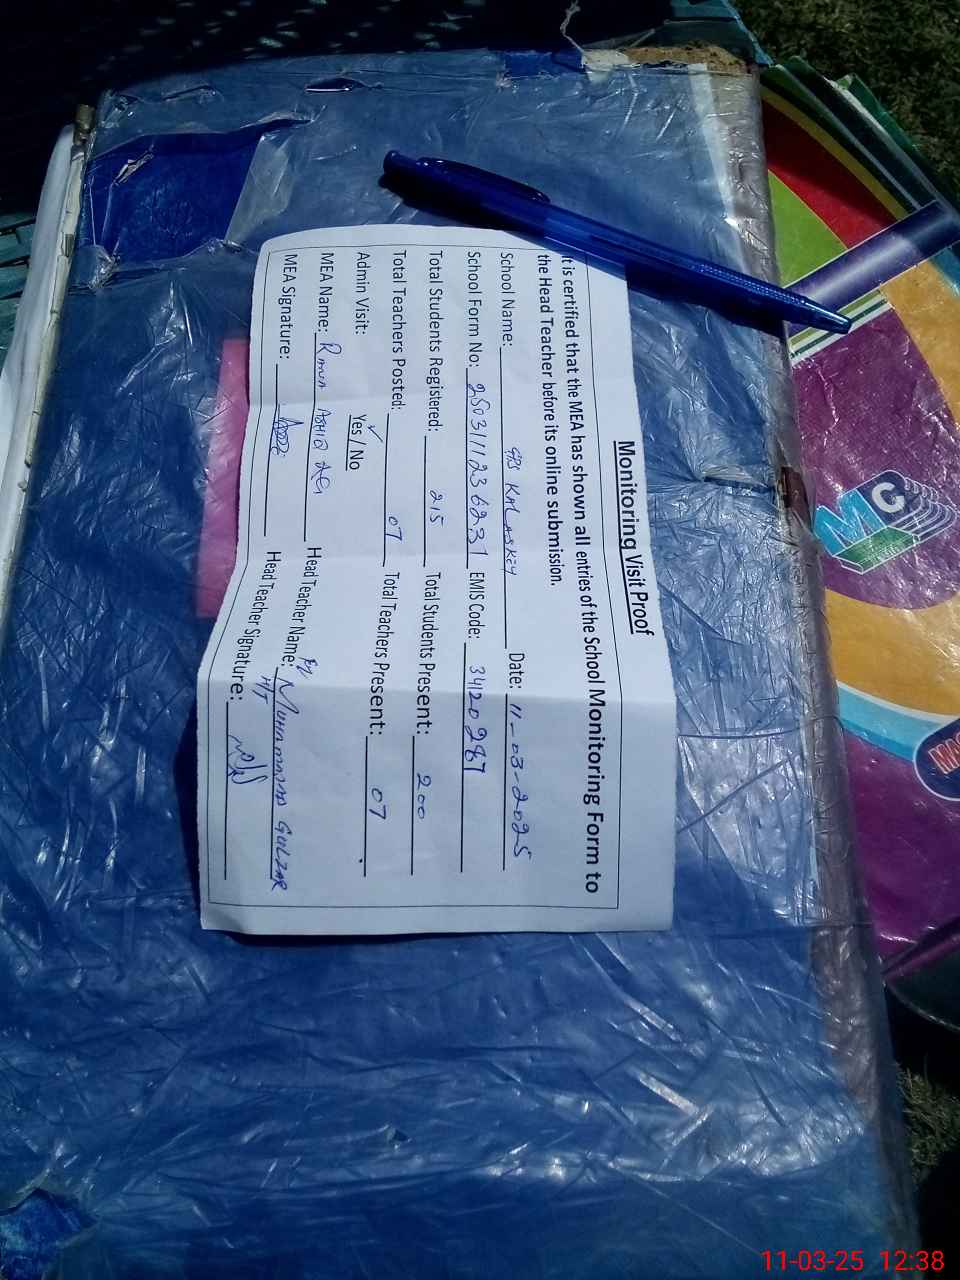 Monitoring Visit Proof
It is certified that the MEA has shown all entries of the School Monitoring Form to
the Head Teacher before its online submission.
School Name: GPS KALASKEY Date: 11-03-2025
School Form No: 2503111236231 EMIS Code: 34120287
Total Students Registered: 215 Total Students Present: 200
Total Teachers Posted: 07 Total Teachers Present: 07
Admin Visit: Yes / No
MEA Name: ASHIQ Head Teacher Name: MUHAMMAD GULZAR
H/T
MEA Signature: Head Teacher Signature:
MG
11-03-25 12:38